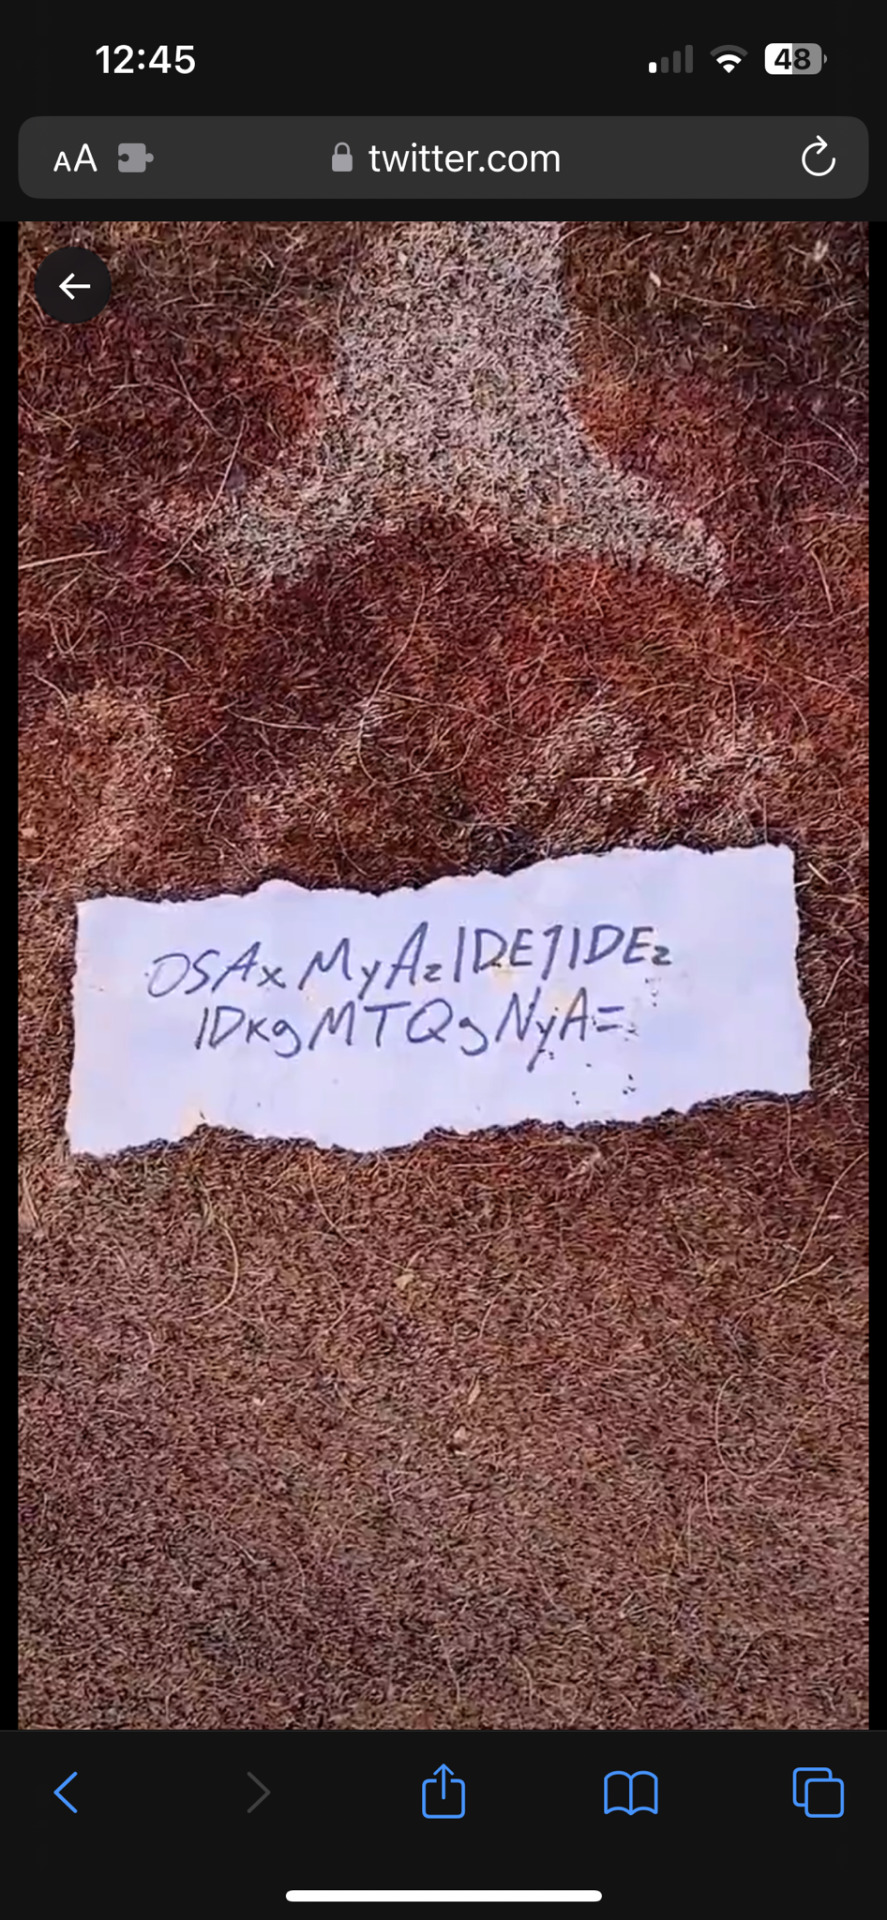 12:45
48
AA twitter.com
OSAxMyAzIDE1IDEz
IDkgMTQgNyA=